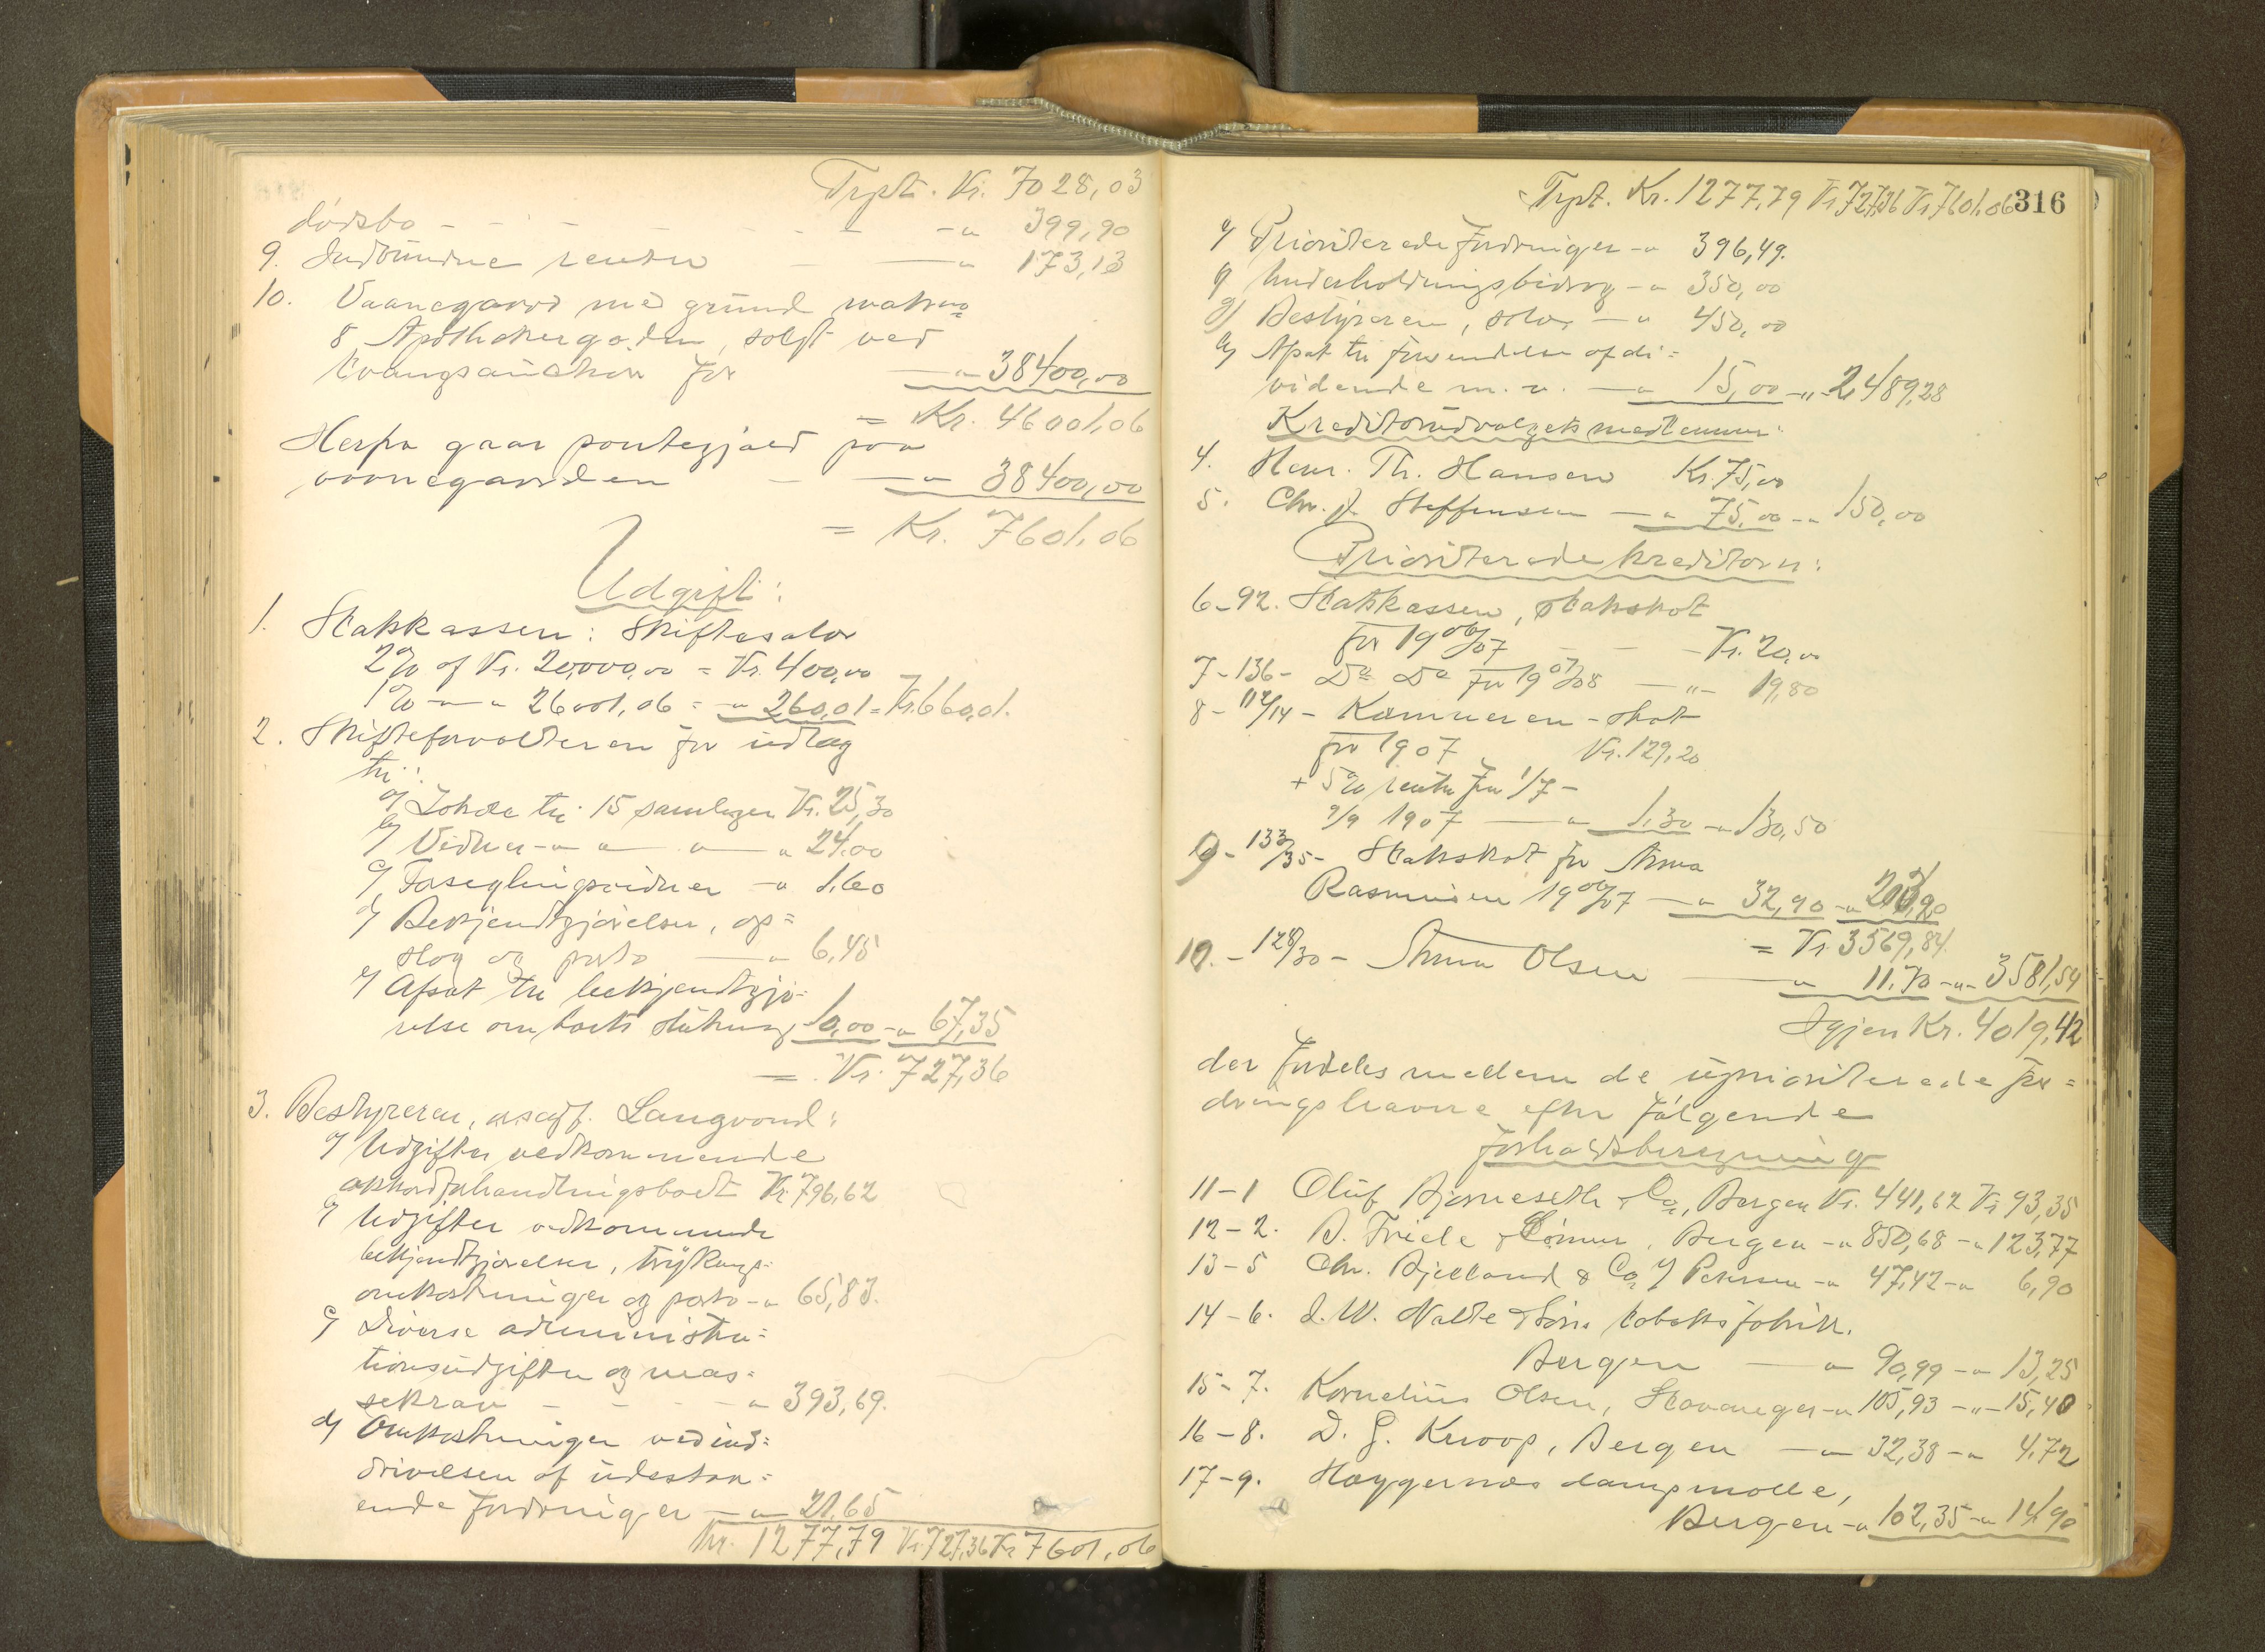 Trpt. Kr. 7028,03
dødsbo - - - - - - - -" 399,90
9. Indvundne renter - -" 173,13
10. Vaanegaard med grund matr no
8 Apothekergaden, solgt ved
tvangsauktion for -" 38400,00
= Kr. 46001,06
Herfra gaar pantegjæld paa
vaanegaarden - -" 38400,00
= Kr. 7601,06
Udgift:
1. Statskassen: Skiftesalær
2% af Kr. 20,000,00 = Kr. 400,00
1% -"-" 26001,06 = -" 260,01 = Kr. 660,01.
2. Skifteforvalteren for udlæg
til:
a) Lokale til 15 samlinger Kr. 25,30
b) Vidner -" " " -" 24,00
c) Forseglingsvidner -" 1,60
d) Bekjendtgjørelser, op=
slag og porto -" 6,45
e) Afsat til bekjendtgjø=
relse om boets slutning 10,00 -" 67,35
= Kr. 727,36
3. Bestyreren, o.r.sagf. Langvand:
a) Udgifter vedkommende
akkordforhandlingsboet Kr. 796,62
b) Udgifter vedkommende
bekjendtgjørelser, tryknings=
omkostninger og porto -" 65,83.
c) Diverse administra=
tionsudgifter og mas=
sekrav - - - -" 393,69.
d) Omkostninger ved ind=
drivelsen af udestaa=
ende fordringer -" 21,65
Kr. 1277,79 Kr. 727,36 Kr. 7601,06
Trpt. Kr. 1277,79 Kr. 727,36 Kr. 7601,06 316
e) Prioriterede fordringer -" 396,49.
f) Underholdningsbidrag -" 350,00
g) Bestyreren, salær -" 450,00
h) Afsat til forsendelse af di=
vidende m.v. -" 15,00 -"- 2489,28
Kreditorudvalgets medlemmer:
4. Henr. Th. Hansen Kr. 75,00
5. Chr. J. Steffensen -" 75,00 -" 150,00
Prioriterede kreditorer:
6-92. Statskassen, statsskat
for 1906/07 - - - Kr. 20,00
7-136- Do Do for 1907/08 -"- 19,80
8-112/14 - Kæmneren - skat
for 1907 Kr. 129,20
+ 5% rente fra 1/7 -
9/9 1907 -" 1,30 -" 130,50
9-133/35- Statsskat for Anna
Rasmusen 1906/07 -" 32,90 -" 203,20
= Kr. 3569,84.
10.-128/30- Anna Olsen -" 11,70 -"- 3581,54
Igjen Kr. 4019,42
der fordeles mellem de uprioriterede for=
dringshavere efter følgende
forholdsberegning
11-1 Oluf Bjørneseth & Co, Bergen Kr. 441,62 Kr. 93,35
12-2. B. Friele & Sønner, Bergen -" 850,68 -" 123,77
13-5 Chr. Bjelland & Co / Petersen -" 47,42 -" 6,90
14-6. J. W. Nalte & Søns tobaksfabrik.
Bergen -" 90,99 -" 13,25
15-7. Kornelius Olsen, Stavanger -" 105,93 -"- 15,40
16-8. D. G. Knoop, Bergen -" 32,38 -" 4,72
17-9. Hæggernæs dampmølle,
Bergen -" 102,35 -" 14,90